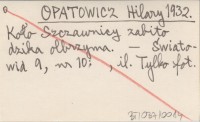 OPATOWICZ Hilary 1932.
Koło Szczawnicy zabito
dzika olbrzyma. — Świato-
wid 9, nr 10: , il. Tylko fot.